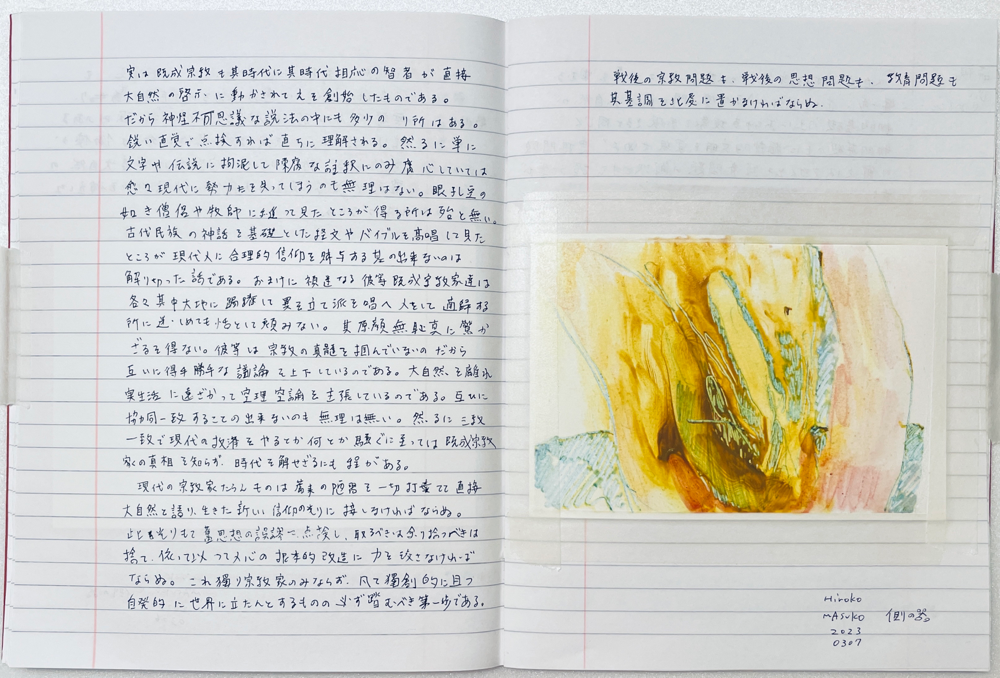 実は既成宗教も其時代に其時代相応の智者が直接
大自然の啓示に動かされてえを創始したものである。
だから神怪不可思議な説法の中にも多少の リ所はある。
鋭い直覚で点検すれば直ちに理解される。然るに単に
文字や伝説に拘泥して陳腐な註釈にのみ腐心していては
愈々現代に勢力を失ってしまうのも無理はない。眼丸豆の
如き僧侶や牧師に逢って見たところが得る所は殆と無い。
古代民族の神話を基礎とした経文やバイブルを高唱して見た
ところが現代人に合理的信仰を與与する其の出来ないのは
解り切った話である。おまけに被達なる彼等既成宗教家達は
各々其中大地に 異を立て派を唱へ人をして適帰する
所に迷はしめても恬として顧みない。其厚顔無恥真に驚か
ざるを得ない。彼等は宗教の真髄を掴んでいないのだから
互いに得手勝手な議論を上下しているのである。大自然を離れ
実生活に遠ざかって空理空論を主張しているのである。互ひに
協同一致することの出来ないのも無理は無い。然るに三教
一致で現代の救済をやるとか何とか騒ぐに至っては既成宗教
家の真相を知らず、時代を解せざるにも程がある。
現代の宗教家たらんものは舊来の陋習を一切打棄てて直接
大自然と語り、生きた新しい信仰の光りに接しなければならぬ。
此を光りもて舊思想の誤謬を点検し、取るべきは取り捨つべきは
捨て、依って以つて人心の根本的改造に力を致さなければ
ならぬ。これ獨り宗教家のみならず、凡て獨創的に且つ
自発的に世界に立たんとするものの必ず踏むべき第一歩である。
戦後の宗教問題も、戦後の思想問題も、教育問題も
其基調を此處に置かなければならぬ。
Hiroko
mASuko 側の器。
2023
0307